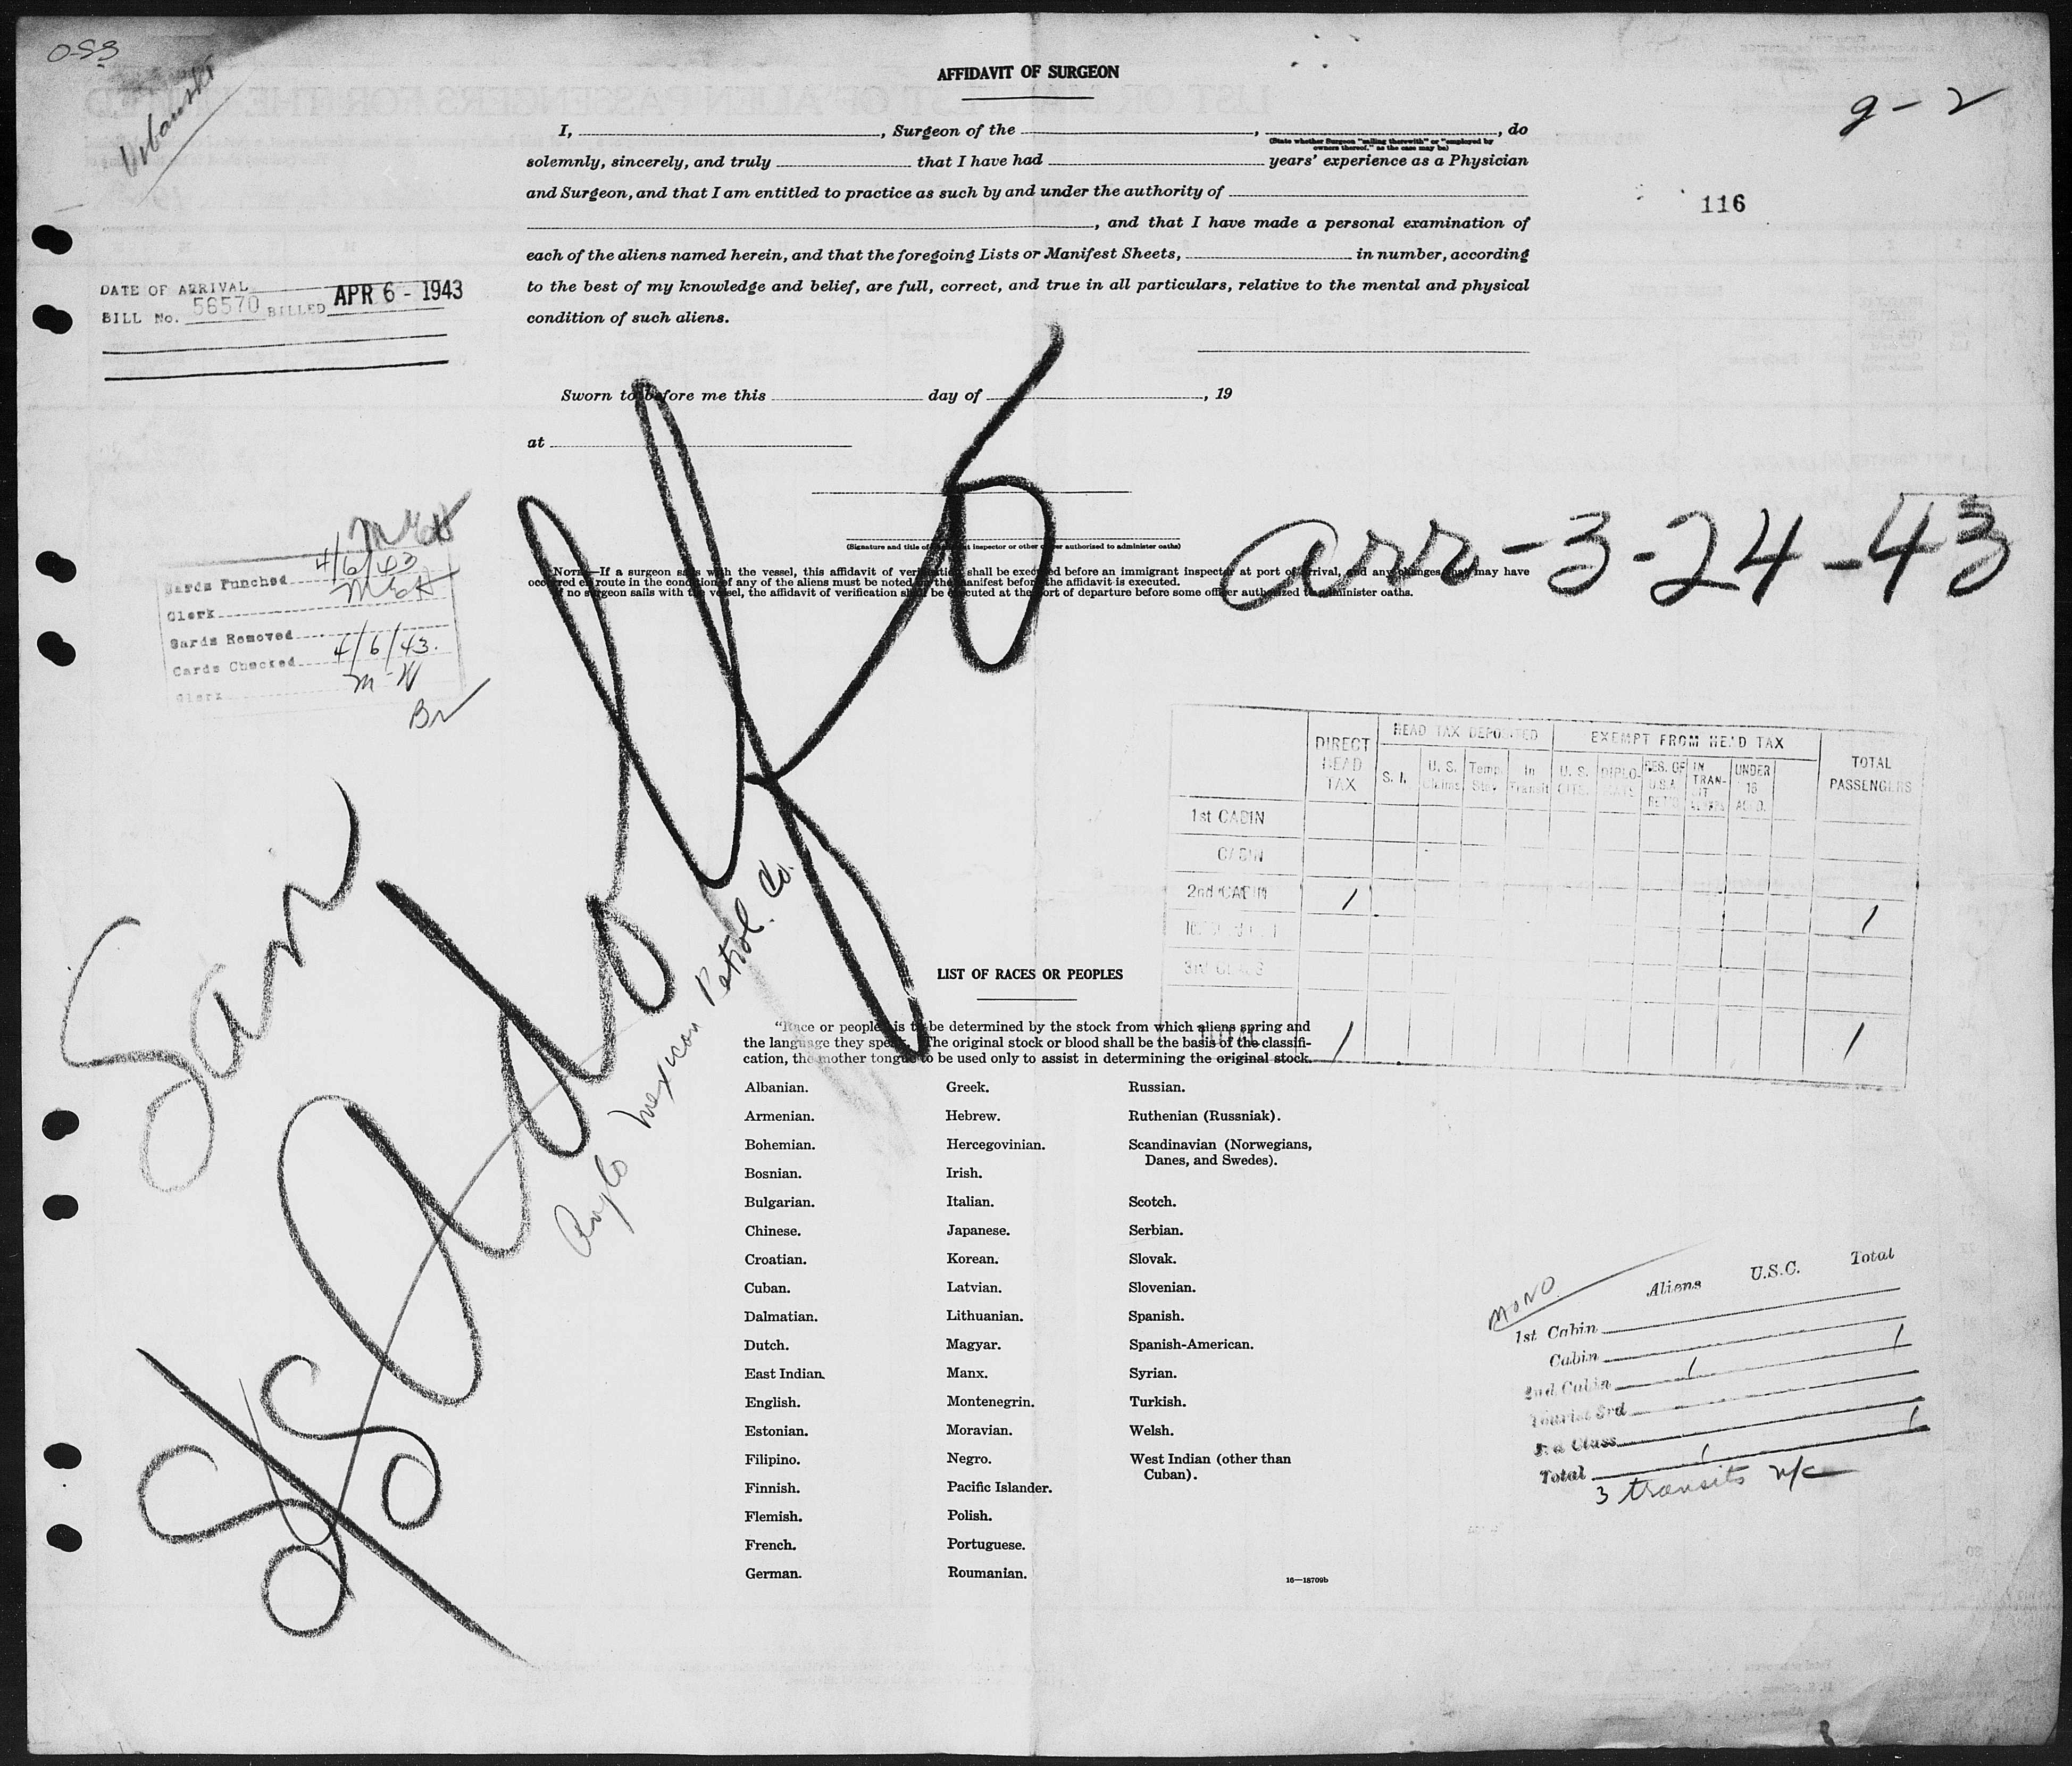 OSS
Urbanski
g-2
116
AFFIDAVIT OF SURGEON
I, , Surgeon of the , , do
(State whether Surgeon "sailing therewith" or "employed by
owners thereof," as the case may be)
solemnly, sincerely, and truly that I have had years' experience as a Physician
and Surgeon, and that I am entitled to practice as such by and under the authority of
, and that I have made a personal examination of
each of the aliens named herein, and that the foregoing Lists or Manifest Sheets, in number, according
to the best of my knowledge and belief, are full, correct, and true in all particulars, relative to the mental and physical
condition of such aliens.
DATE OF ARRIVAL
BILL No. 56570 BILLED APR 6 - 1943
Sworn to before me this day of , 19
at
(Signature and title of immigrant inspector or other officer authorized to administer oaths)
NOTE.—If a surgeon sails with the vessel, this affidavit of verification shall be executed before an immigrant inspector at port of arrival, and any changes that may have
occurred en route in the condition of any of the aliens must be noted on the manifest before the affidavit is executed.
If no surgeon sails with the vessel, the affidavit of verification shall be executed at the port of departure before some officer authorized to administer oaths.
arr-3-24-43
Cards Punched 4/6/43
Clerk
Cards Removed
Cards Checked 4/6/43.
Clerk
S/S San Adolfo
Anglo Mexican Petrol. Co.
DIRECT HEAD TAX
HEAD TAX DEPOSITED
EXEMPT FROM HEAD TAX
TOTAL PASSENGERS
S. I.
U. S. Claims
Temp. Stay
In Transit
U. S. CITS.
DIPLO-MATS
RES. OF U.S.A. RET'G
IN TRAN-SIT
UNDER 16 ACC'D.
1st CABIN
CABIN
2nd CABIN 1 1
3rd CLASS
TOTAL 1 1
LIST OF RACES OR PEOPLES
"Race or people" is to be determined by the stock from which aliens spring and
the language they speak. The original stock or blood shall be the basis of the classifi-
cation, the mother tongue to be used only to assist in determining the original stock.
Albanian.
Armenian.
Bohemian.
Bosnian.
Bulgarian.
Chinese.
Croatian.
Cuban.
Dalmatian.
Dutch.
East Indian.
English.
Estonian.
Filipino.
Finnish.
Flemish.
French.
German.
Greek.
Hebrew.
Hercegovinian.
Irish.
Italian.
Japanese.
Korean.
Latvian.
Lithuanian.
Magyar.
Manx.
Montenegrin.
Moravian.
Negro.
Pacific Islander.
Polish.
Portuguese.
Roumanian.
Russian.
Ruthenian (Russniak).
Scandinavian (Norwegians,
Danes, and Swedes).
Scotch.
Serbian.
Slovak.
Slovenian.
Spanish.
Spanish-American.
Syrian.
Turkish.
Welsh.
West Indian (other than
Cuban).
16—18709b
MONO
Aliens U.S.C. Total
1st Cabin
Cabin
2nd Cabin 1 1
Tourist 3rd
3rd Class
Total 1 1
3 transits n/c